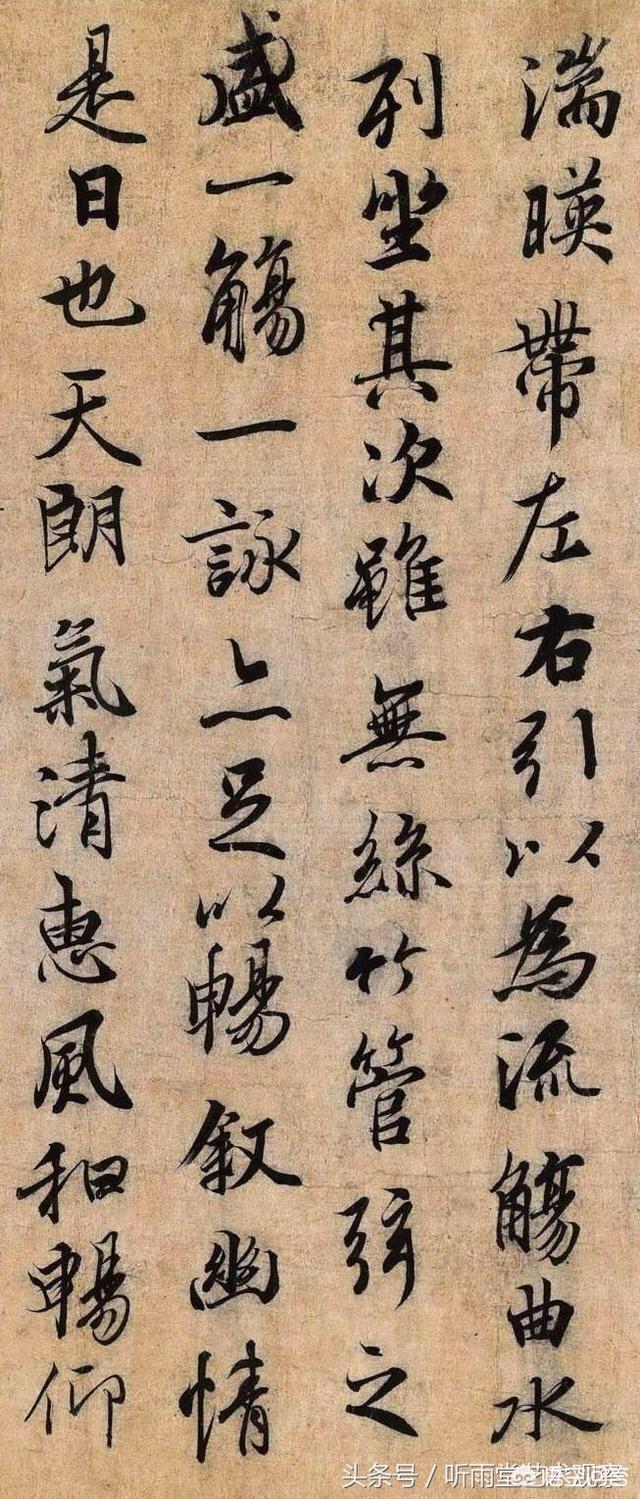 湍暎帶左右引以為流觴曲水
列坐其次雖無絲竹管弦之
盛一觴一詠亦足以暢敘幽情
是日也天朗氣清惠風和暢仰
头条号／听雨堂